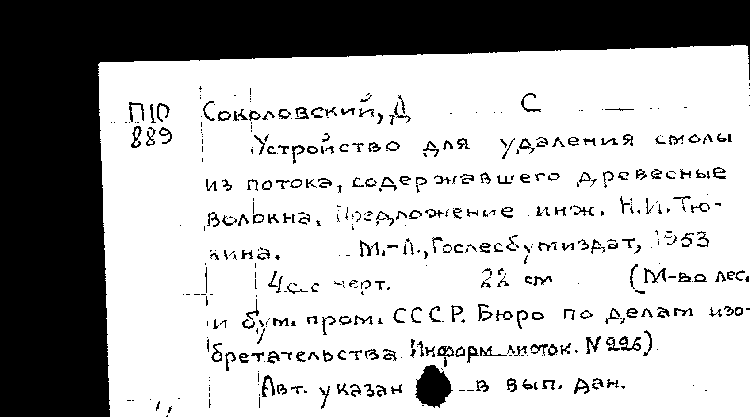 П10 Соколовский, Д С
889 Устройство для удаления смолы
из потока, содержавшего древесные
волокна. Предложение инж. Н.И.Тю-
кина. М.-Л., Гослесбумиздат, 1953
4с. с черт. 22 см (М-во лес.
и бум. пром. СССР. Бюро по делам изо-
бретательства Информ. листок. N 226)
Авт. указан в вып. дан.